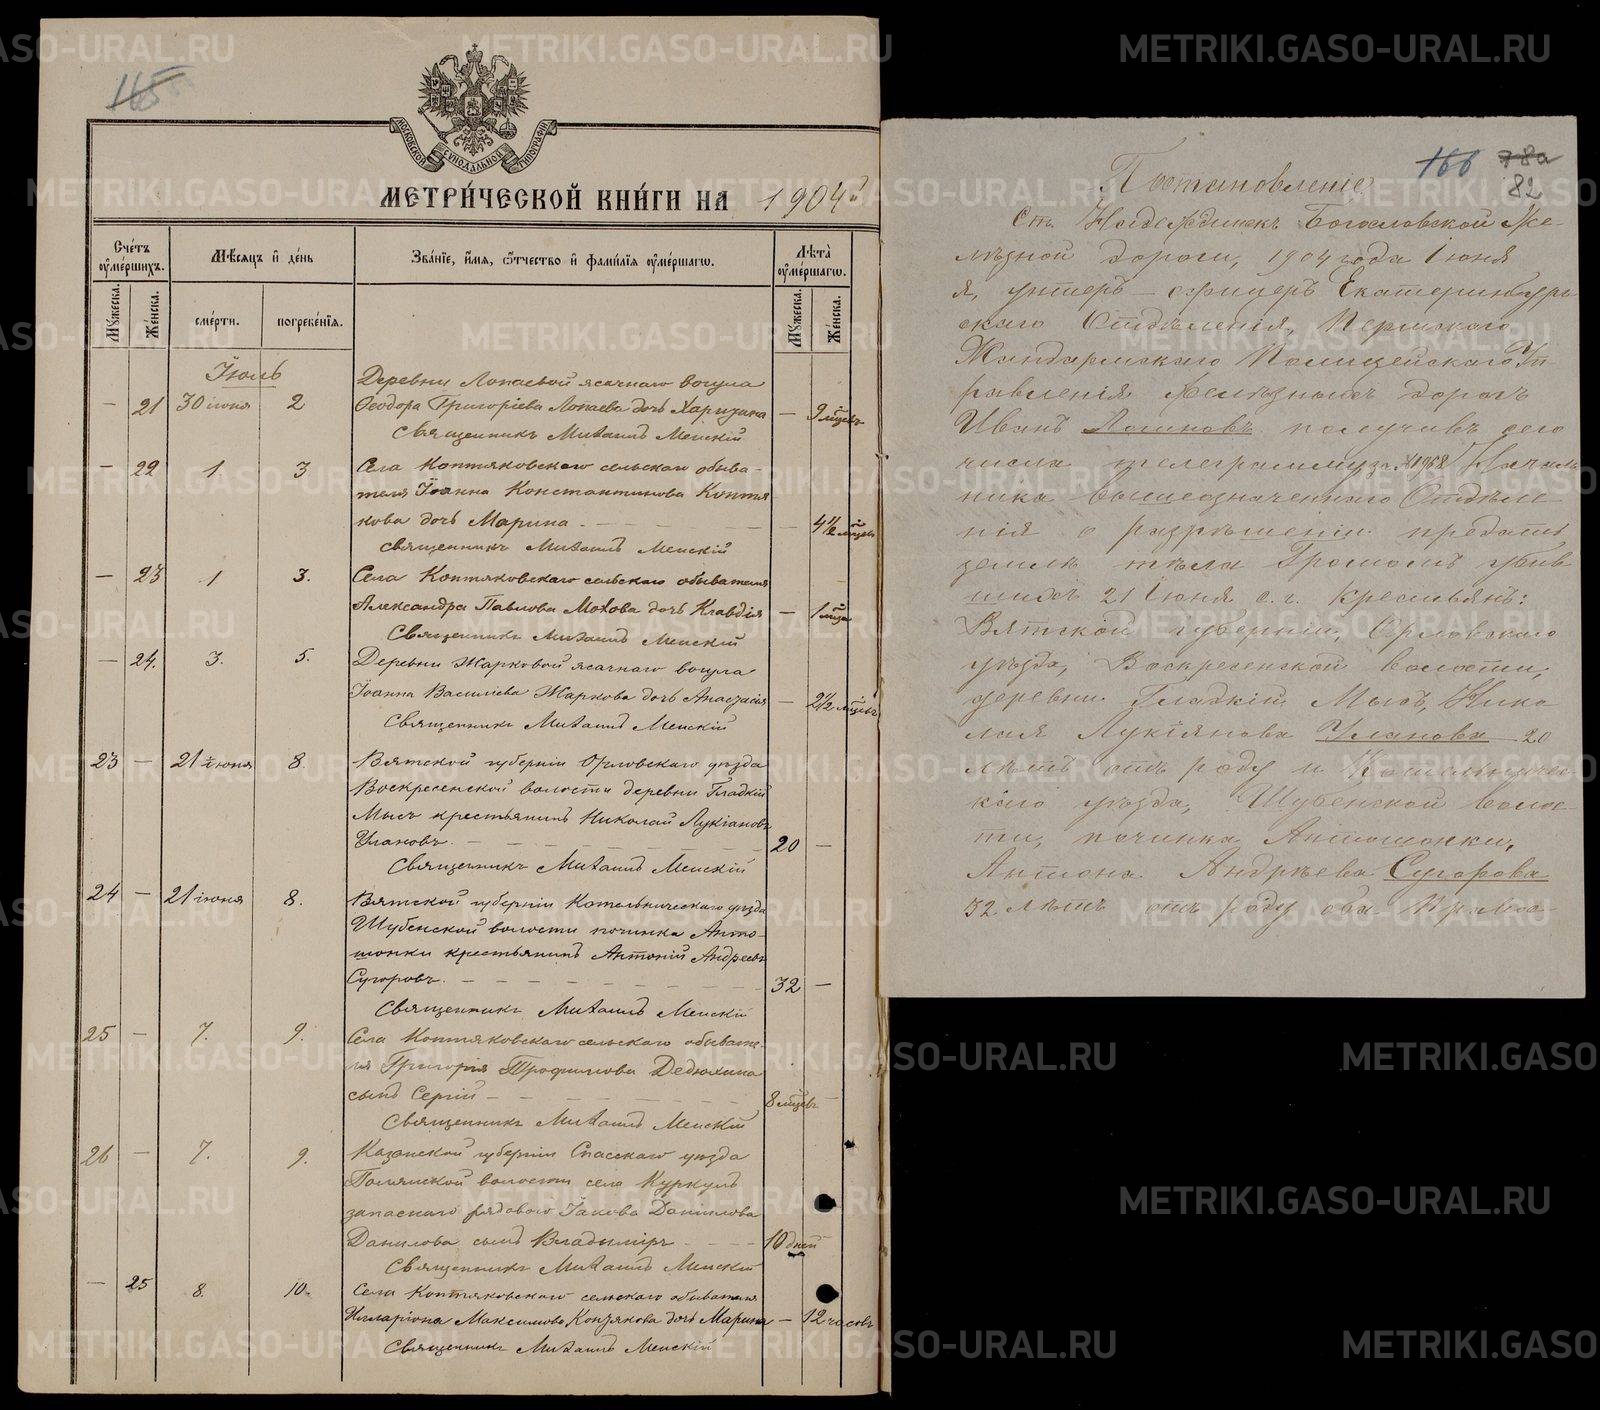 165
МОСКОВСКОЙ СѴНОДАЛЬНОЙ ТИПОГРАФІИ
МЕТРИ́ЧЕСКОЙ КНИ́ГИ НА 1904 й
Сче́тъ оуме́ршихъ. Мѣ́сяцъ и҆ де́нь Зва́нїе, и҆́мя, ѻ҆́тчество и҆ фами́лїя оуме́ршагѡ. Лѣ́та оуме́ршагѡ.
Мꙋ́жеска. Же́нска. сме́рти. погребе́нїя. Мꙋ́жеска. Же́нска.
Іюль
Деревни Лопаевой ясачнаго вогула
— 21 30 іюня 2 Ѳеодора Григоріева Лопаева дочь Харитина — 9 мѣсцевъ
Священникъ Михаилъ Менскій
— 22 1. 3 Села Коптяковскаго сельскаго обыва-
теля Іоанна Константинова Коптя
кова дочь Марина — 4½ мѣсцевъ
Священникъ Михаилъ Менскій
— 23 1 3. Села Коптяковскаго сельскаго обывателя
Александра Павлова Мохова дочь Клавдія — 1 мѣсца
Священникъ Михаилъ Менскій
— 24. 3. 5. Деревни Жарковой ясачнаго вогула
Іоанна Василіева Жаркова дочь Анастасія — 2½ мѣсцевъ
Священникъ Михаилъ Менскій
23 — 21 іюня 8. Вятской губерніи Орловскаго уѣзда
Воскресенской волости деревни Гладкій
Мысъ крестьянинъ Николай Лукіановъ
Улановъ. 20 —
Священникъ Михаилъ Менскій
24 — 21 іюня 8. Вятской губерніи Котельническаго уѣзда
Шубенской волости починка Анто-
шонки крестьянинъ Антоній Андреевъ
Сугоровъ. 32 —
Священникъ Михаилъ Менскій
25 — 7. 9. Села Коптяковскаго сельскаго обывате-
ля Григорія Трофимова Дедюхина
сынъ Сергій — 8 мѣсцевъ
Священникъ Михаилъ Менскій
26 — 7. 9. Казанской губерніи Спасскаго уѣзда
волости села Куркуль
запаснаго рядового Іакова Данилова
Данилова сынъ Владыміръ 10 дней
Священникъ Михаилъ Менскій
— 25 8. 10. Села Коптяковскаго сельскаго обывателя
Илларіона Максимова Конзякова дочь Марина — 12 часовъ
Священникъ Михаилъ Менскій
166 78а
82
Постановленіе
Ст. Надеждинскъ Богословской Же-
лѣзной дороги, 1904 года Іюня
я, унтеръ-офицеръ Екатеринбург-
скаго Отдѣленія, Пермскаго
Жандармскаго Полицейскаго Уп
равленія желѣзныхъ дорогъ
Иванъ Логиновъ получивъ сего
числа телеграмму за № 1952 Началь
ника вышеозначеннаго Отдѣле
нія о разрѣшеніи предать
землѣ тѣла Громомъ убив
шихъ 21 Іюня с. г. крестьянъ:
Вятской губерніи, Орловскаго
уѣзда, Воскресенской волости,
деревни Гладкій Мысъ, Нико
лая Лукіянова Уланова 20
лѣтъ отъ роду и Котельничес-
каго уѣзда, Шубенской волос-
ти, починка Антошонки,
Антона Андреева Сугорова
32 лѣтъ отъ роду
METRIKI.GASO-URAL.RU